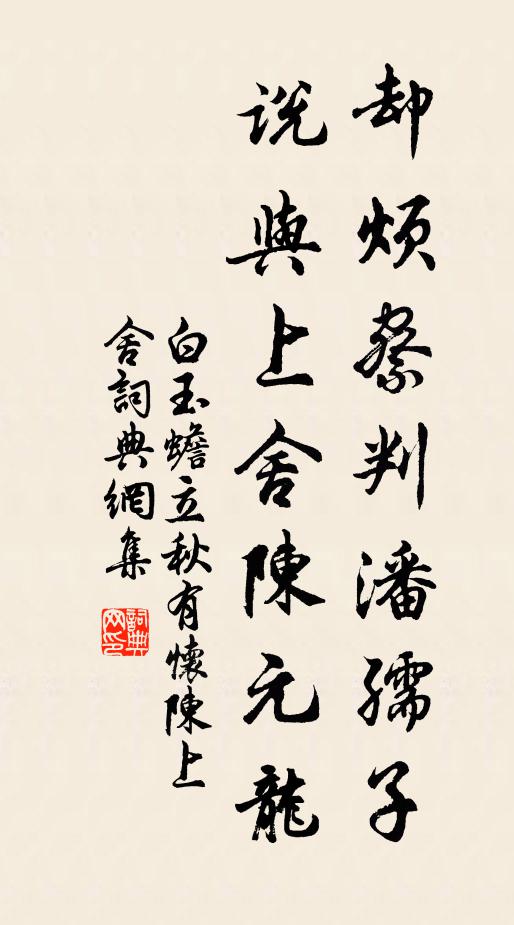 却煩察判潘孺子
説與上舍陳元龍
白玉蟾立秋有懷陳上
舍詞典網集
詞典
网印